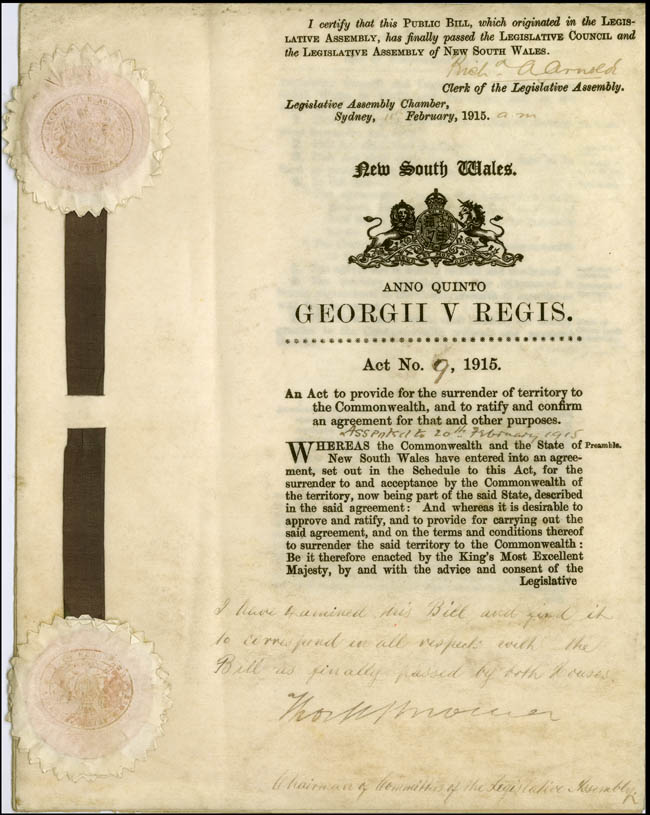 I certify that this PUBLIC BILL, which originated in the LEGIS-
LATIVE ASSEMBLY, has finally passed the LEGISLATIVE COUNCIL and
the LEGISLATIVE ASSEMBLY of NEW SOUTH WALES.
Richd A Arnold
Clerk of the Legislative Assembly.
Legislative Assembly Chamber,
Sydney, February, 1915. a.m
New South Wales.
ANNO QUINTO
GEORGII V REGIS.
Act No. 9, 1915.
An Act to provide for the surrender of territory to
the Commonwealth, and to ratify and confirm
an agreement for that and other purposes.
Assented to 20th February 1915
WHEREAS the Commonwealth and the State of Preamble.
New South Wales have entered into an agree-
ment, set out in the Schedule to this Act, for the
surrender to and acceptance by the Commonwealth of
the territory, now being part of the said State, described
in the said agreement: And whereas it is desirable to
approve and ratify, and to provide for carrying out the
said agreement, and on the terms and conditions thereof
to surrender the said territory to the Commonwealth:
Be it therefore enacted by the King's Most Excellent
Majesty, by and with the advice and consent of the
Legislative
I have examined this Bill and find it
to correspond in all respects with the
Bill as finally passed by both Houses.
Chairman of Committees of the Legislative Assembly